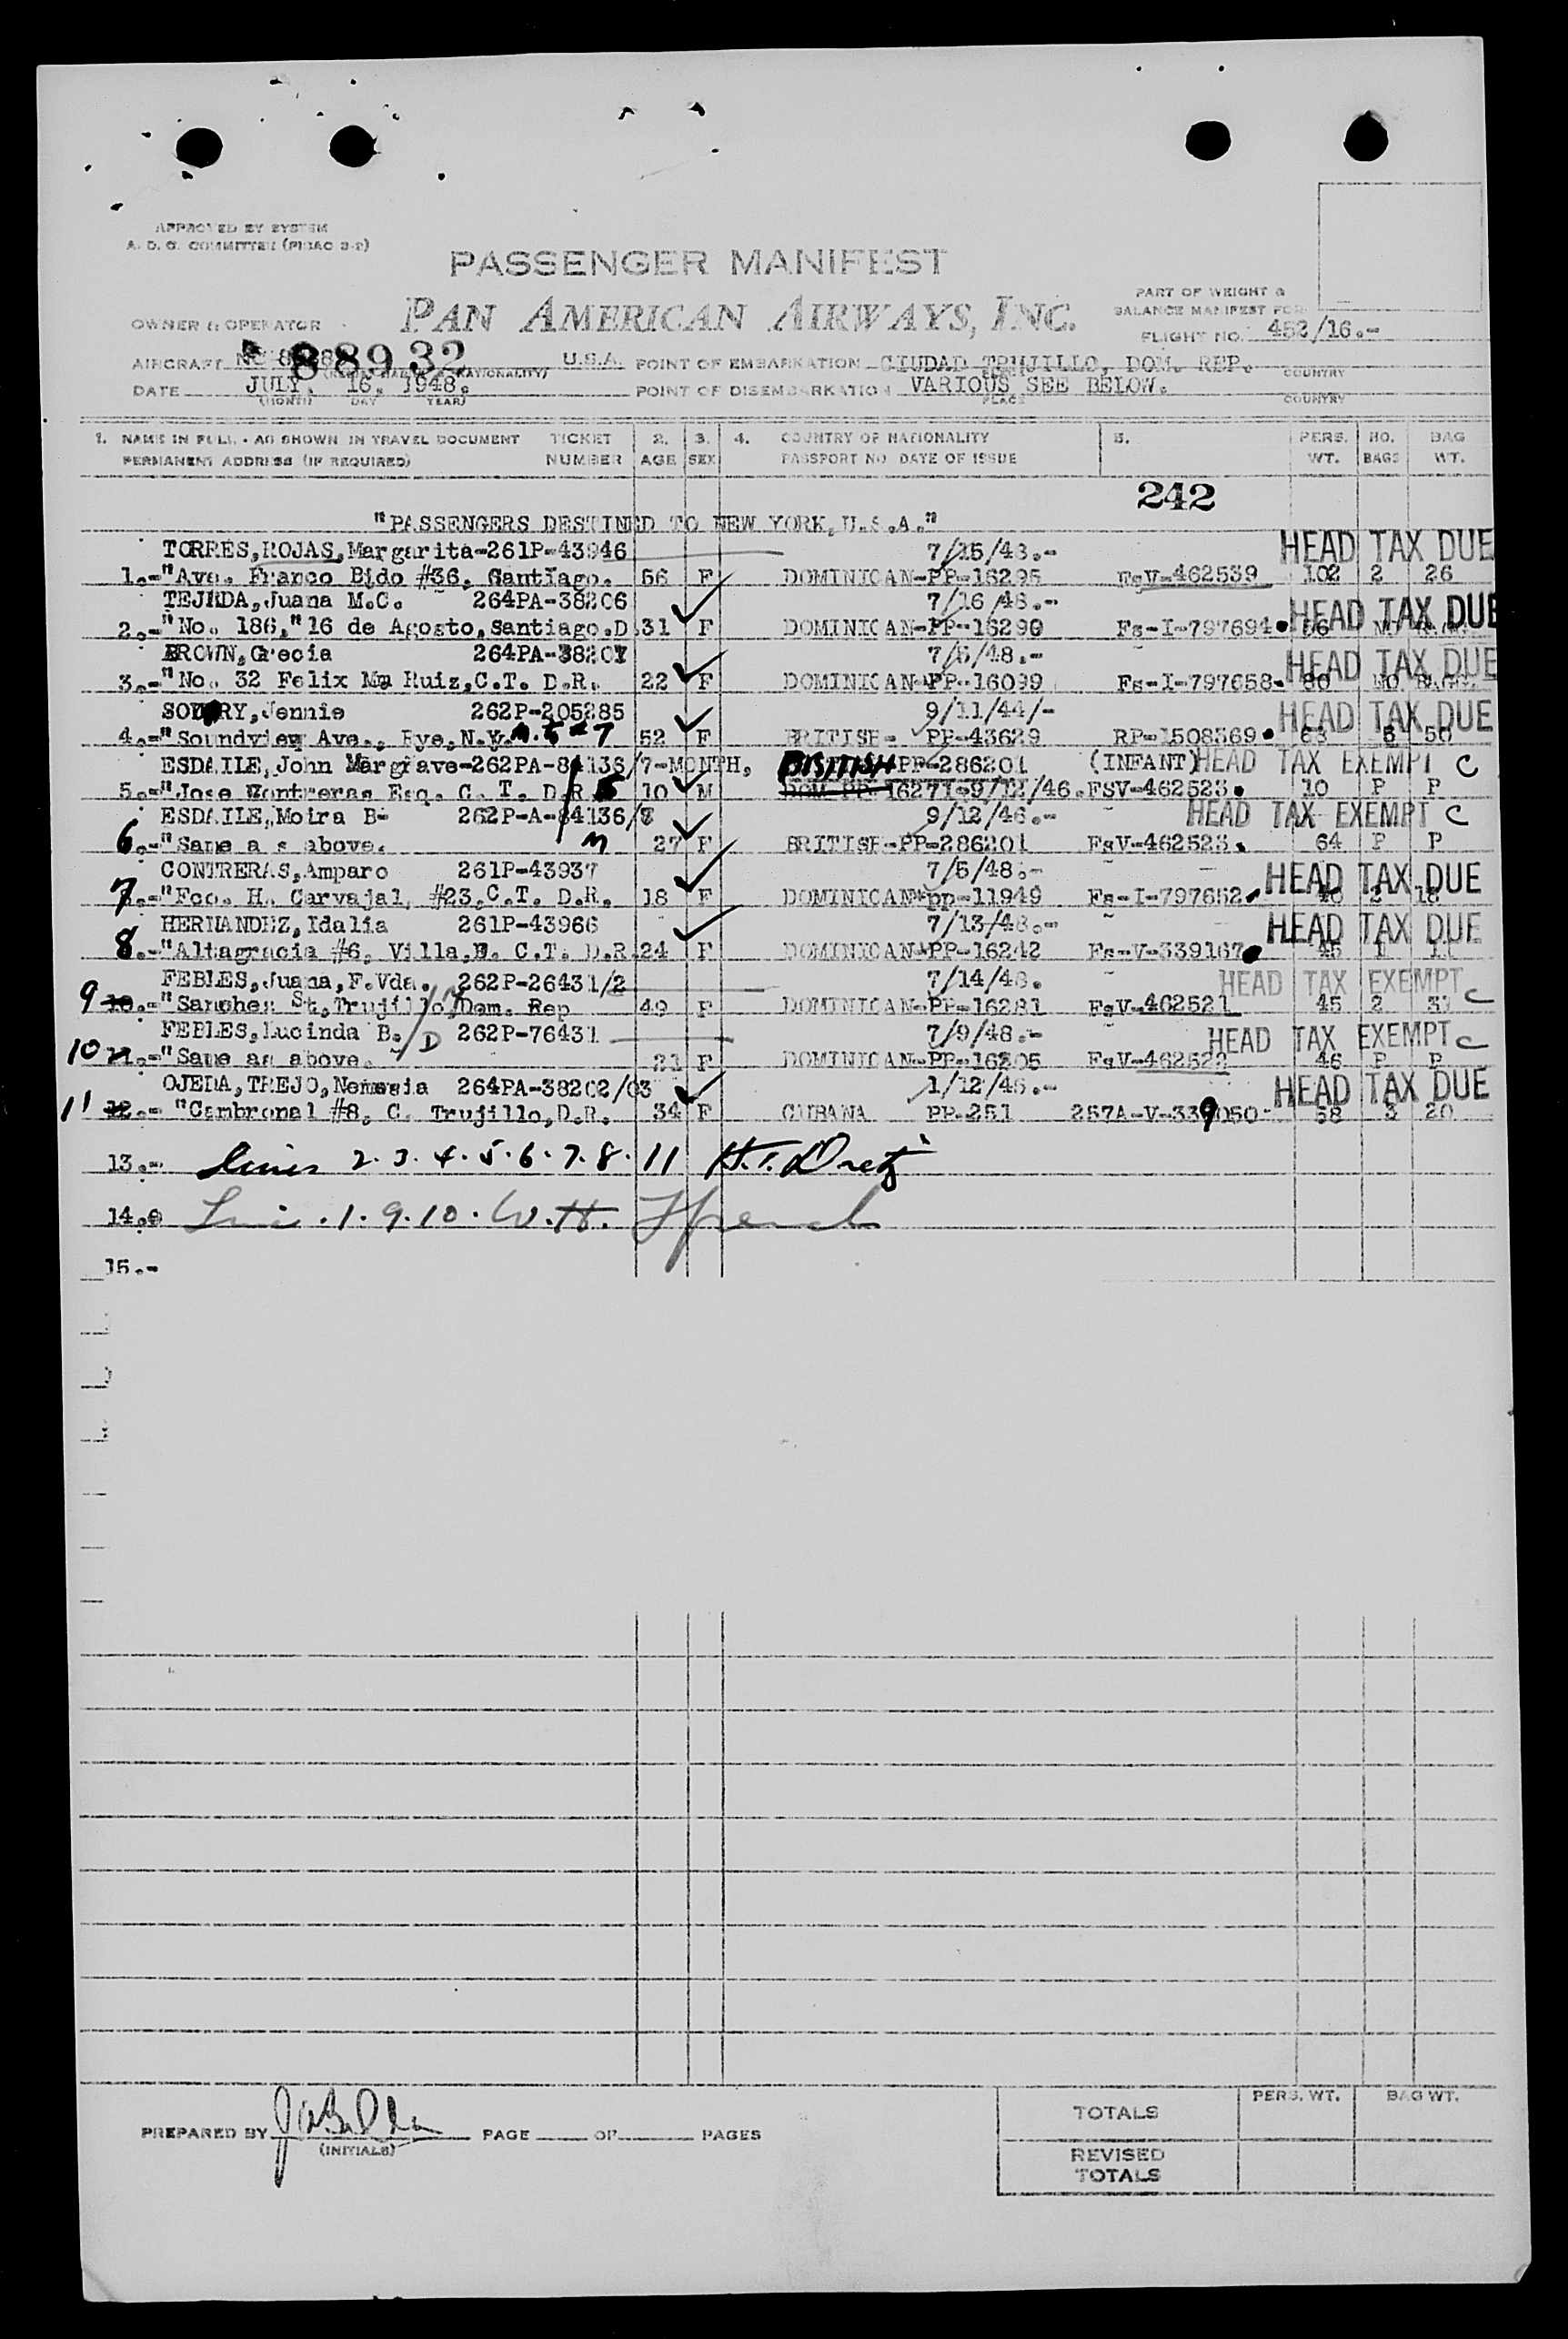 APPROVED BY SYSTEM
A. D. O. COMMITTEE (PISAC 3-2)
PASSENGER MANIFEST
PAN AMERICAN AIRWAYS, INC.
PART OF WEIGHT &
BALANCE MANIFEST FOR
OWNER & OPERATOR
FLIGHT NO. 452/16.-
AIRCRAFT NC 88932 U.S.A. POINT OF EMBARKATION CIUDAD TRUJILLO, DOM. REP.
NATIONALITY) COUNTRY
DATE JULY, 16, 1948. POINT OF DISEMBARKATION VARIOUS SEE BELOW.
(MONTH) DAY YEAR) PLACE COUNTRY
1. NAME IN FULL - AS SHOWN IN TRAVEL DOCUMENT TICKET 2. 3. 4. COUNTRY OF NATIONALITY 5. PERS. NO. BAG
PERMANENT ADDRESS (IF REQUIRED) NUMBER AGE SEX PASSPORT NO DATE OF ISSUE WT. BAGS WT.
242
"PASSENGERS DESTINED TO NEW YORK, U.S.A."
TORRES,ROJAS,Margarita-261P-43946 7/15/48.- HEAD TAX DUE
1.-"Ave. Franco Bido #36, Santiago. 56 F DOMINICAN-PP-16295 FsV-462539 102 2 26
TEJEDA,Juana M.C. 264PA-38206 7/16/48.- HEAD TAX DUE
2.-"No. 186,"16 de Agosto,Santiago.D 31 F DOMINICAN-PP-16290 Fs-I-797694
BROWN,Grecia 264PA-38207 7/6/48.- HEAD TAX DUE
3.-"No. 32 Felix Ma Ruiz,C.T. D.R. 22 F DOMINICAN-PP-16099 Fs-I-797658- 80 NO
Jennie 262P-205285 9/11/44/- HEAD TAX DUE
4.-"Soundview Ave., Rye,N.Y. 52 F BRITISH- PP-43629 RP-1508369 63 50
ESDAILE,John Margrave-262PA-84136/7-MONTH, BRITISH PP-286201 (INFANT) HEAD TAX EXEMPT C
5.-"Jose Contreras Esq. C. T. D.R. 10 M DOM PP-16271-9/12/46. FSV-462523 10 P P
ESDAILE,Moira B- 262P-A-84136/7 9/12/46.- HEAD TAX EXEMPT C
6.-"Same a s above. M 27 F BRITISH-PP-286201 FsV-462523. 64 P P
CONTRERAS,Amparo 261P-43937 7/6/48.- HEAD TAX DUE
7.-"Fco. H. Carvajal, #23,C.T. D.R. 18 F DOMINICAN-pp-11949 Fs-I-797652 46 2 18
HERNANDEZ,Idalia 261P-43966 7/13/48.- HEAD TAX DUE
8.-"Altagracia #6, Villa,F. C.T. D.R. 24 F DOMINICAN-PP-16242 Fs-V-339167 45 1
FEBLES,Juana,F.Vda. 262P-26431/2 7/14/48. HEAD TAX EXEMPT C
9 10.-"Sanchez St,Trujillo Dom. Rep 49 F DOMINICAN-PP-16281 FsV-462521 45 2 31
FEBLES,Lucinda B./D 262P-76431 7/9/48.- HEAD TAX EXEMPT C
10 11.-"Same as above. 21 F DOMINICAN-PP-16205 FsV-462522 46 P P
OJEDA,TREJO,Nemesia 264PA-38202/03 1/12/46.- HEAD TAX DUE
11 12.- "Cambronal #8, C. Trujillo,D.R. 34 F CUBANA PP-251 257A-V-339050- 58 3 20
13.- Lines 2.3.4.5.6.7.8.11 H.T.
14. .1.9.10. W.H. French
15.-
PREPARED BY PAGE OF PAGES
(INITIALS)
PERS. WT. BAG WT.
TOTALS
REVISED
TOTALS